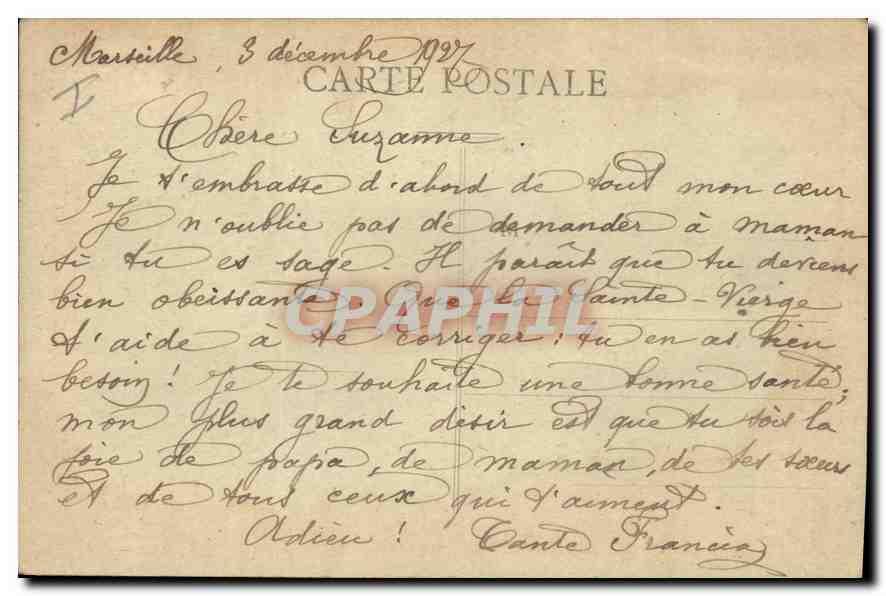 Marseille, 3 décembre 1927
CARTE POSTALE
I
Chère Suzanne.
Je t'embrasse d'abord de tout mon cœur
Je n'oublie pas de demander à maman
si tu es sage. Il paraît que tu deviens
bien obeissante. Que la Sainte-Vierge
CPAPHIL
t'aide à te corriger; tu en as bien
besoin! Je te souhaite une bonne santé;
mon plus grand désir est que tu sois la
joie de papa, de maman, de tes sœurs
et de tous ceux qui t'aiment.
Adieu! Tante Francia